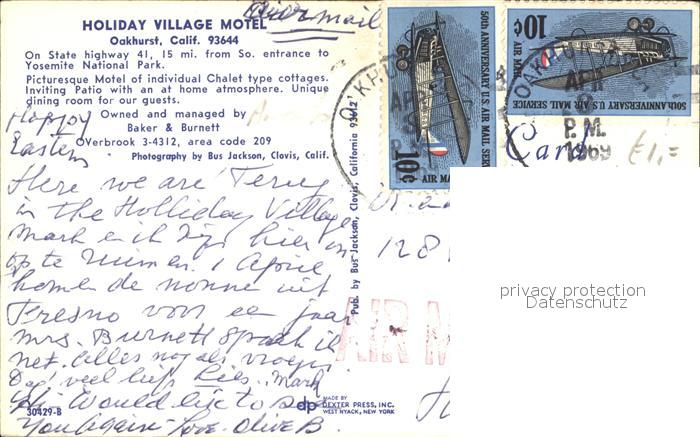 Air mail
HOLIDAY VILLAGE MOTEL
Oakhurst, Calif. 93644
On State highway 41, 15 mi. from So. entrance to
Yosemite National Park.
Picturesque Motel of individual Chalet type cottages.
Inviting Patio with an at home atmosphere. Unique
dining room for our guests.
Owned and managed by
Baker & Burnett
OVerbrook 3-4312, area code 209
Photography by Bus Jackson, Clovis, Calif.
Happy
Eastern
Here we are Terug
in the Holliday Village
Mark en ik zijn hier om
op te ruimen. 1 April
komen de nonnen uit
Fresno voor een jaar
Mrs. Burnett sprak ik
net. Alles nog als vroeger
Dag veel liefs Lies. Mark
Hi- Would like to see
You Again - Love. Olive B.
30429-B
Pub. by Bus Jackson, Clovis, California 93612
dp
MADE BY
DEXTER PRESS, INC.
WEST NYACK, NEW YORK
50TH ANNIVERSARY U.S. AIR MAIL SERVICE
10¢
AIR MAIL
50TH ANNIVERSARY U.S. AIR MAIL SERVICE
10¢
AIR MAIL
OAKHURST
APR
P.M.
1969
£1,=
Card
128
AIR M
privacy protection
Datenschutz